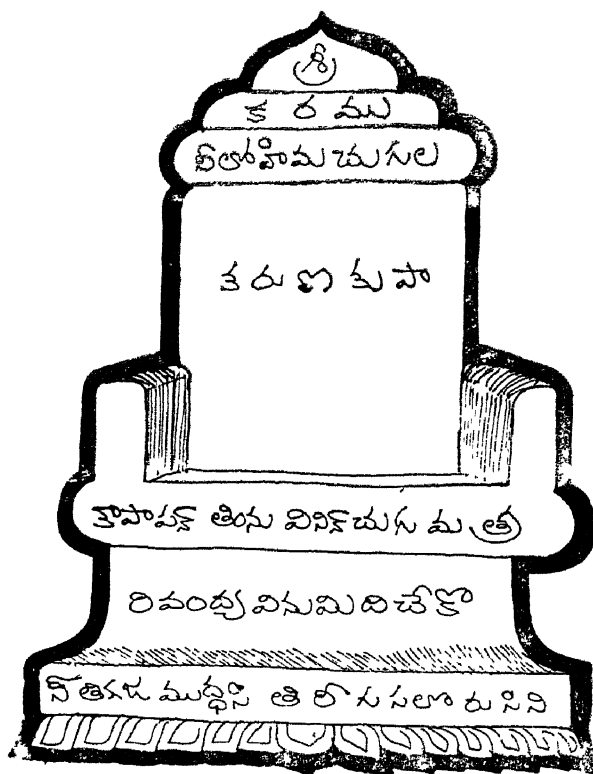 శ్రీ
క ర ము
నీలోహిమ చు గుల
క రు ణ కు పా
కాపాపక్ తింను వినిక్ చుగు మ త్ర
రి వంద్య వి ను మి ది చే కొ
నీ తి గజ ముద్ధసి తి రో గు సలొ రు సి ని